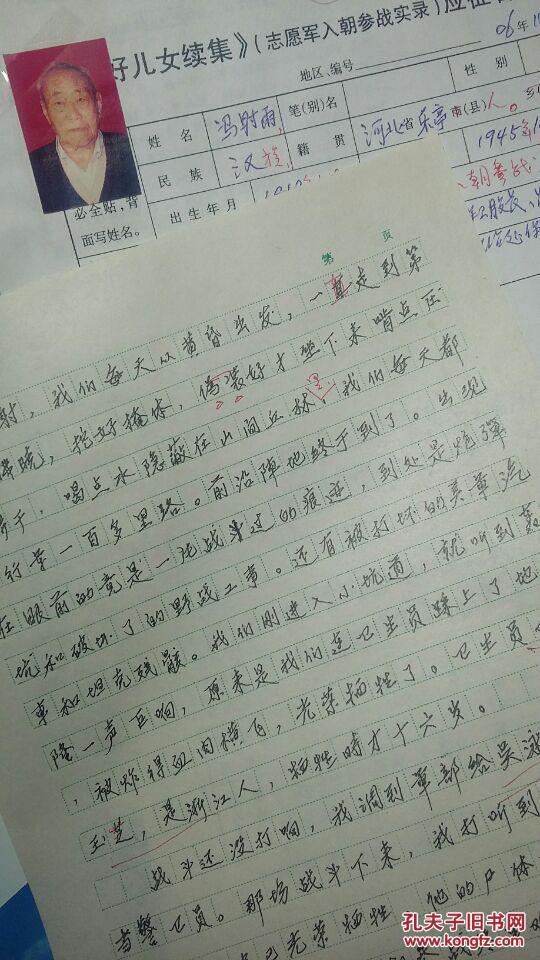 好儿女续集》(志愿军入朝参战实录)应征
06年1
地区、编号
姓名 冯射雨 笔(别)名 性别
民族 汉族 籍贯 河北省乐亭市(县)人。乡(
必全贴,背
面写姓名。
出生年月
1945年1
入朝参战
股长、
第 页
射,我们每天从黄昏出发,一直走到第
拂晓,挖好掩体,伪装好才坐下来啃点压
干,喝点水隐蔽在山间丛林里,我们每天都
行军一百多里路。前沿阵地终于到了。出现
在眼前的竟是一片战斗过的痕迹,到处是炮弹
坑和破坏了的野战工事。还有被打坏的美军汽
车和坦克残骸。我们刚进入小坑道,就听到轰
隆一声巨响,原来是我们连卫生员踩上了地
,被炸得血肉横飞,光荣牺牲了。卫生员
玉芝,是浙江人,牺牲时才十六岁。
战斗还没打响,我调到军部给吴
当警卫员。那场战斗下来,我打听到
已光荣牺牲,他的尸体
孔夫子旧书网
www.kongfz.com